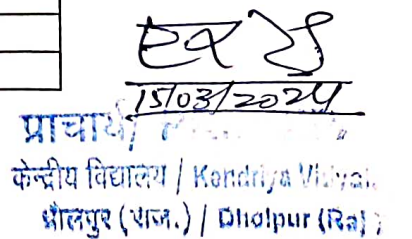 15/03/2024
प्राचार्य/
केन्द्रीय विद्यालय / Kendriya
धौलपुर (राज.) / Dholpur (Raj)